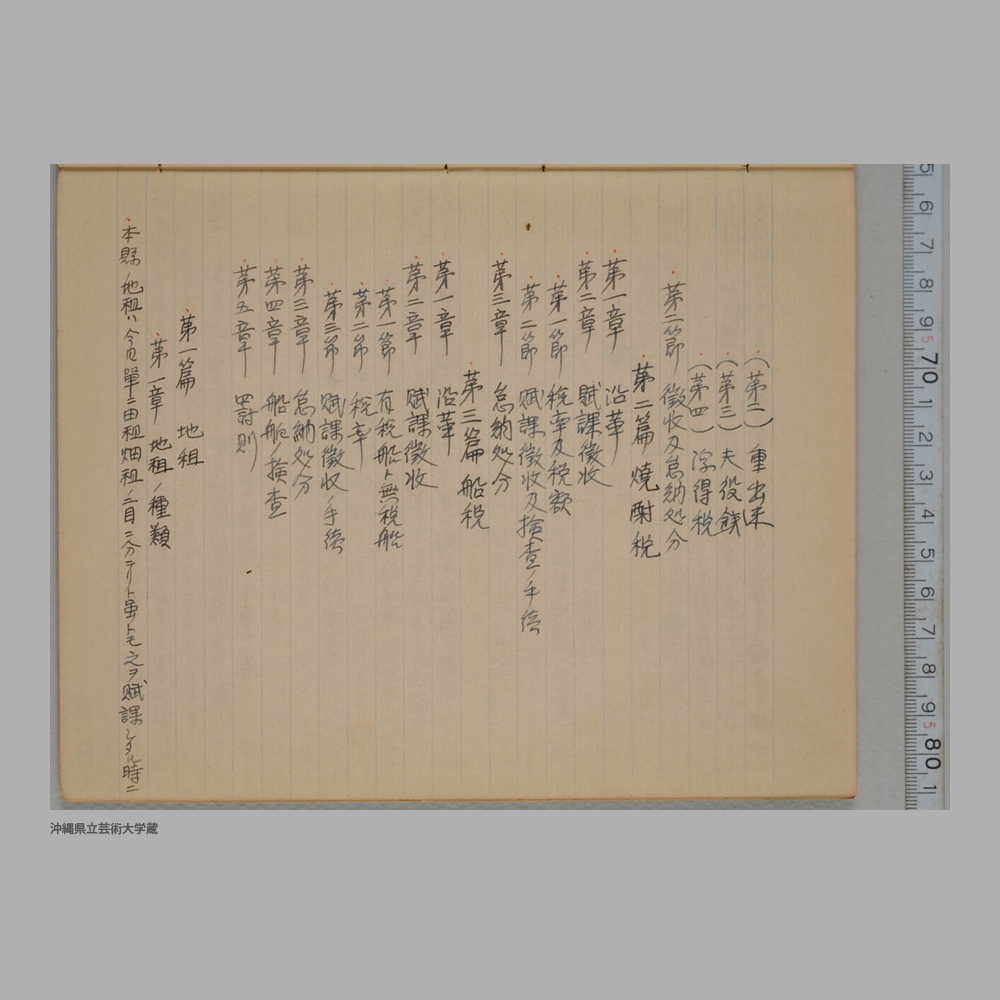 (第二) 重出米
(第三) 夫役銭
(第四) 浮得税
第二節 徴収及怠納処分
第二篇 焼酎税
第一章 沿革
第二章 賦課徴收
第一節 税率及税額
第二節 賦課徴收及検査ノ手続
第三章 怠納処分
第三篇 船税
第一章 沿革
第二章 賦課徴收
第一節 有税船ト無税船
第二節 税率
第三節 賦課徴収ノ手続
第三章 怠納処分
第四章 船舶ノ検査
第五章 罰則
第一篇 地租
第一章 地租ノ種類
本縣ノ地租ハ今日單ニ田租畑租ノ二目ニ分テリト雖トモ之ヲ賦課シタル時ニ
5 6 7 8 9 70 1 2 3 4 5 6 7 8 9 80 1
沖縄県立芸術大学蔵